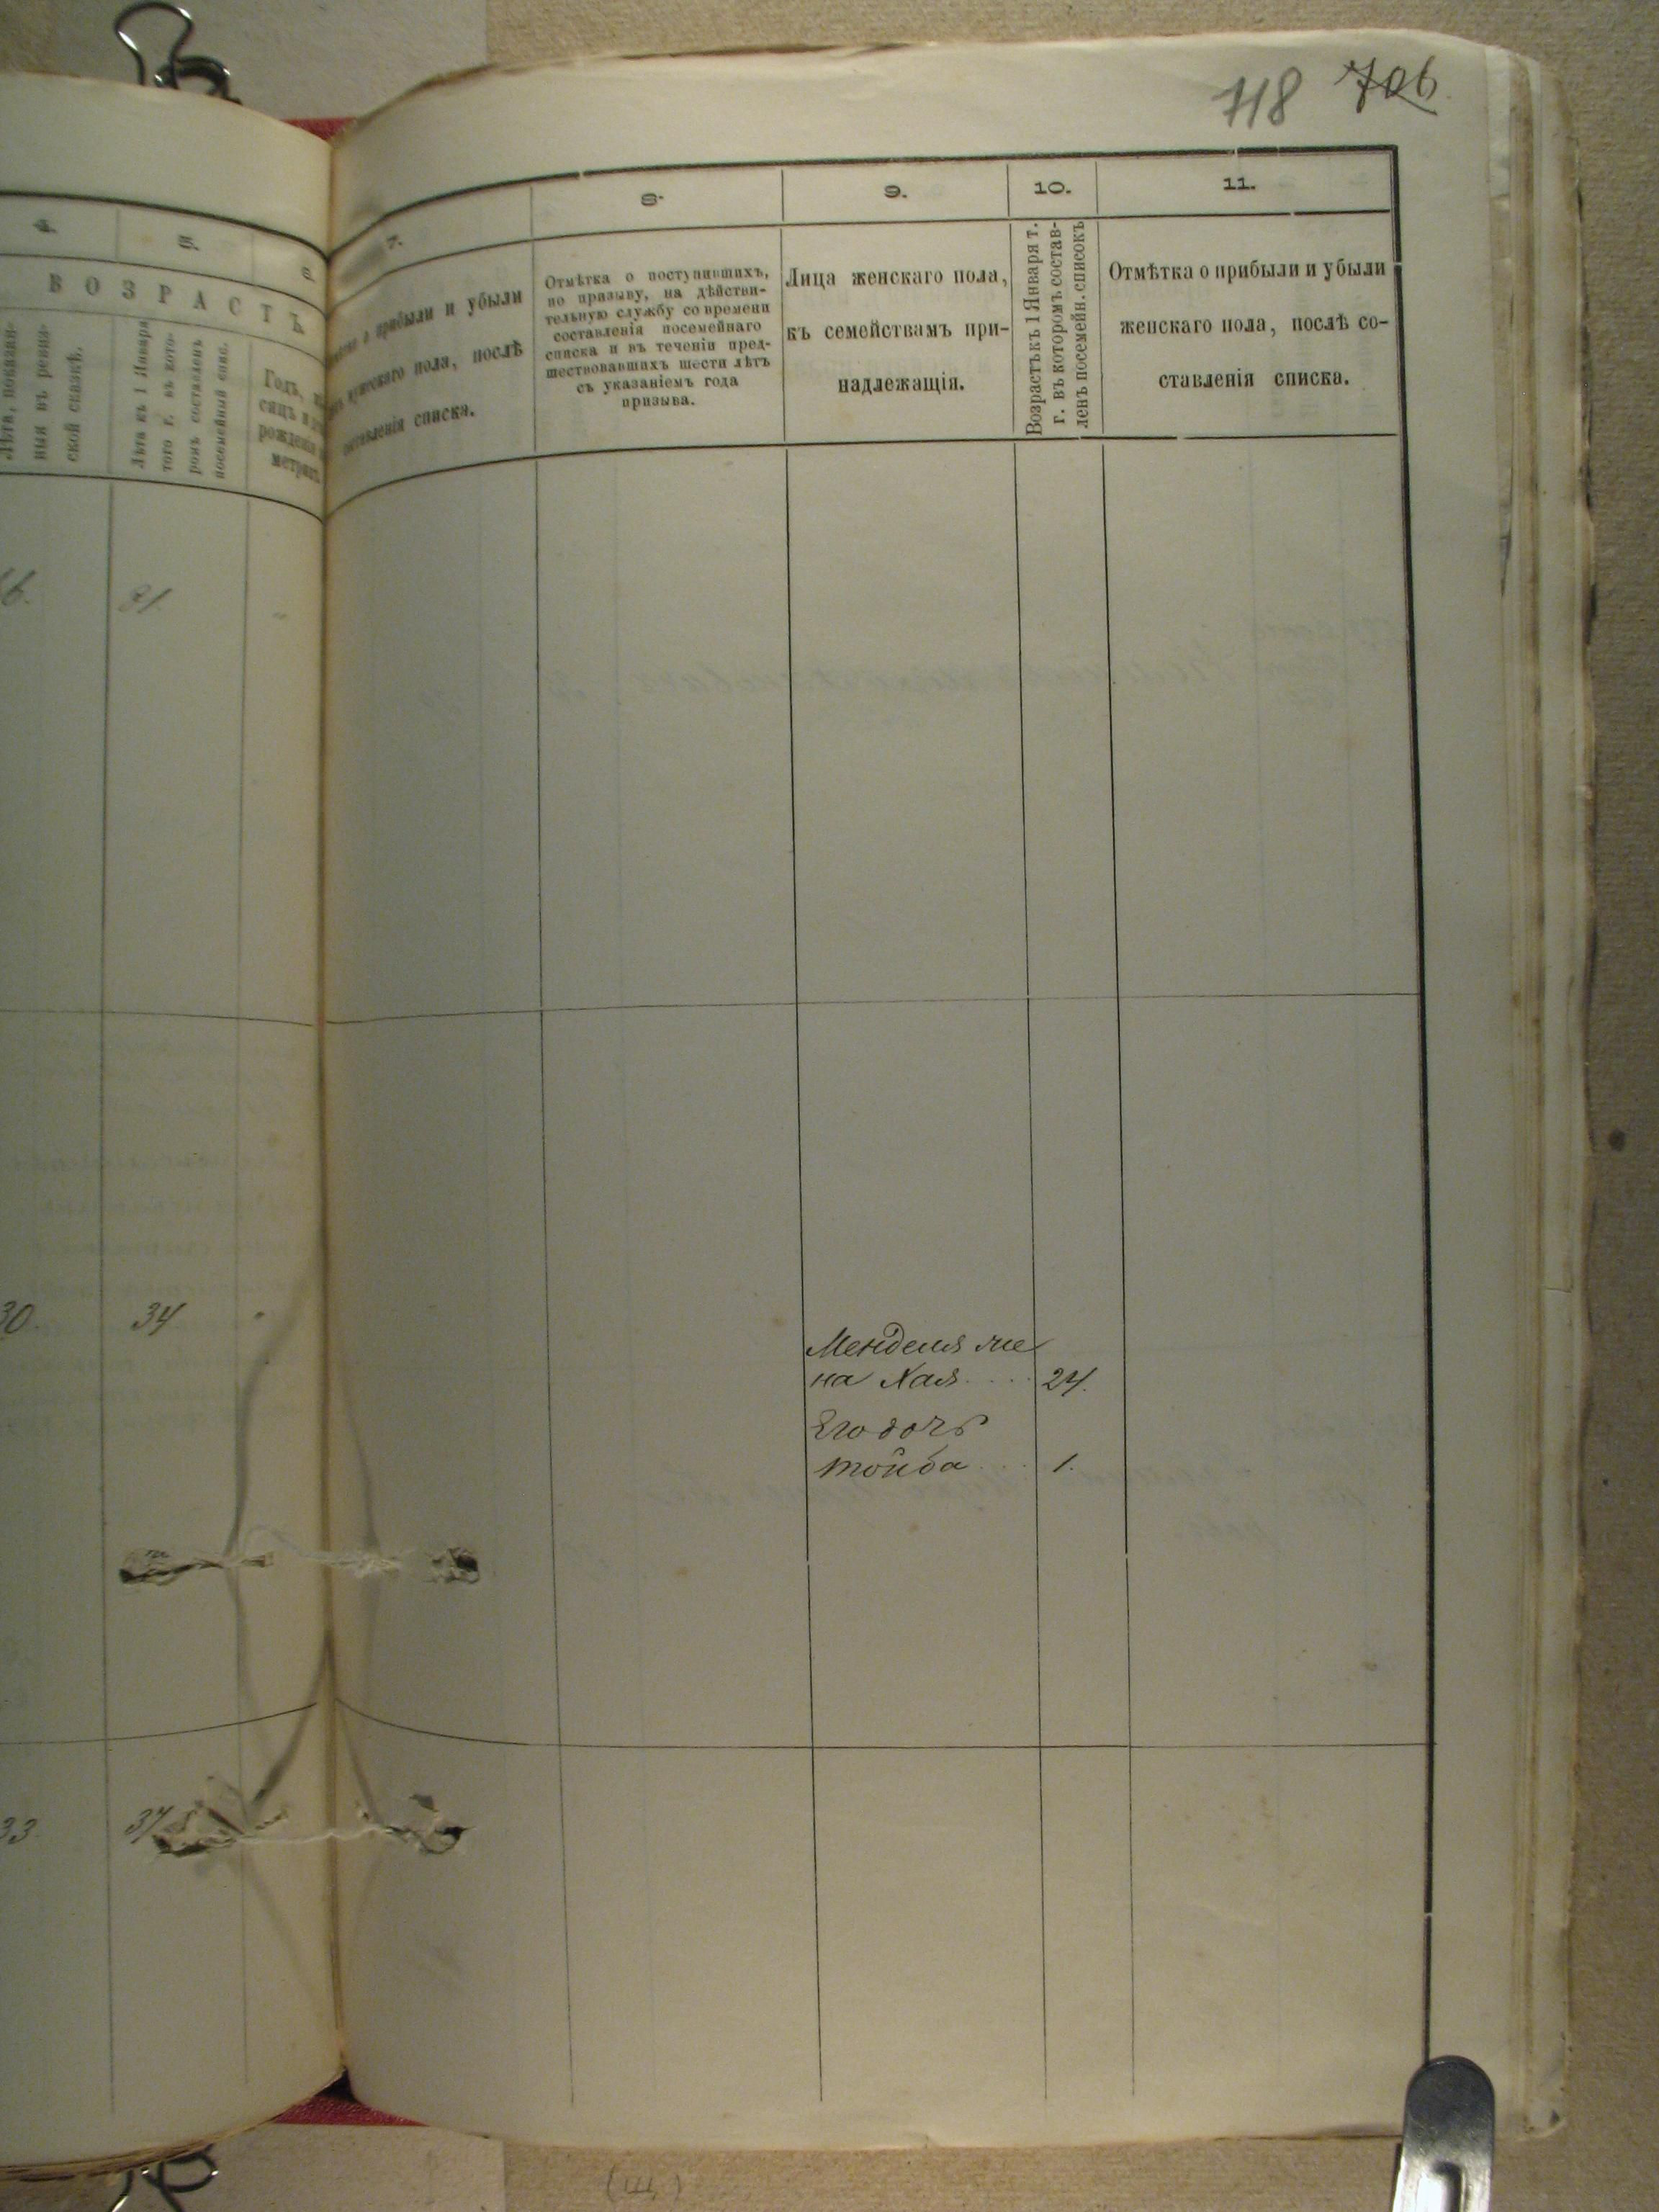 718 706
4. 5. 6.
ВОЗРАСТЪ
Лѣта, показан-
ныя въ ревиз-
ской сказкѣ.
Лѣта къ 1 Января
того г. въ кото-
ромъ составленъ
посемейный спис.
Годъ,
рожденія
31
30. 34
33 37
7. 8. 9. 10. 11.
о прибыли и убыли
мужескаго пола, послѣ
составленія списка.
Отмѣтка о поступившихъ,
по призыву, на дѣйстви-
тельную службу со времени
составленія посемейнаго
списка и въ теченіи пред-
шествовавшихъ шести лѣтъ
съ указаніемъ года
призыва.
Лица женскаго пола,
къ семействамъ при-
надлежащія.
Возрастъ къ 1 Января т.
г. въ которомъ состав-
ленъ посемейн. списокъ
Отмѣтка о прибыли и убыли
женскаго пола, послѣ со-
ставленія списка.
Менделя же
на Хая.... 24.
Его дочь
Тойба... 1.
(Щ)